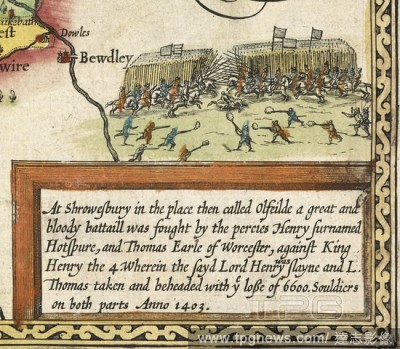 kesbath
est
Dowles
wire
Bewdley
At Shrowesbury in the place then called Olfeilde a great and
bloody battaill was fought by the percies Henry surnamed
Hotspure, and Thomas Earle of Worcester, against King
Henry the 4. Wherein the sayd Lord Henry was slayne and L.
Thomas taken and beheaded with ẏ losse of 6600. Souldiers
on both parts Anno 1403.
TPG
www.tpgnews.com / 達志影像